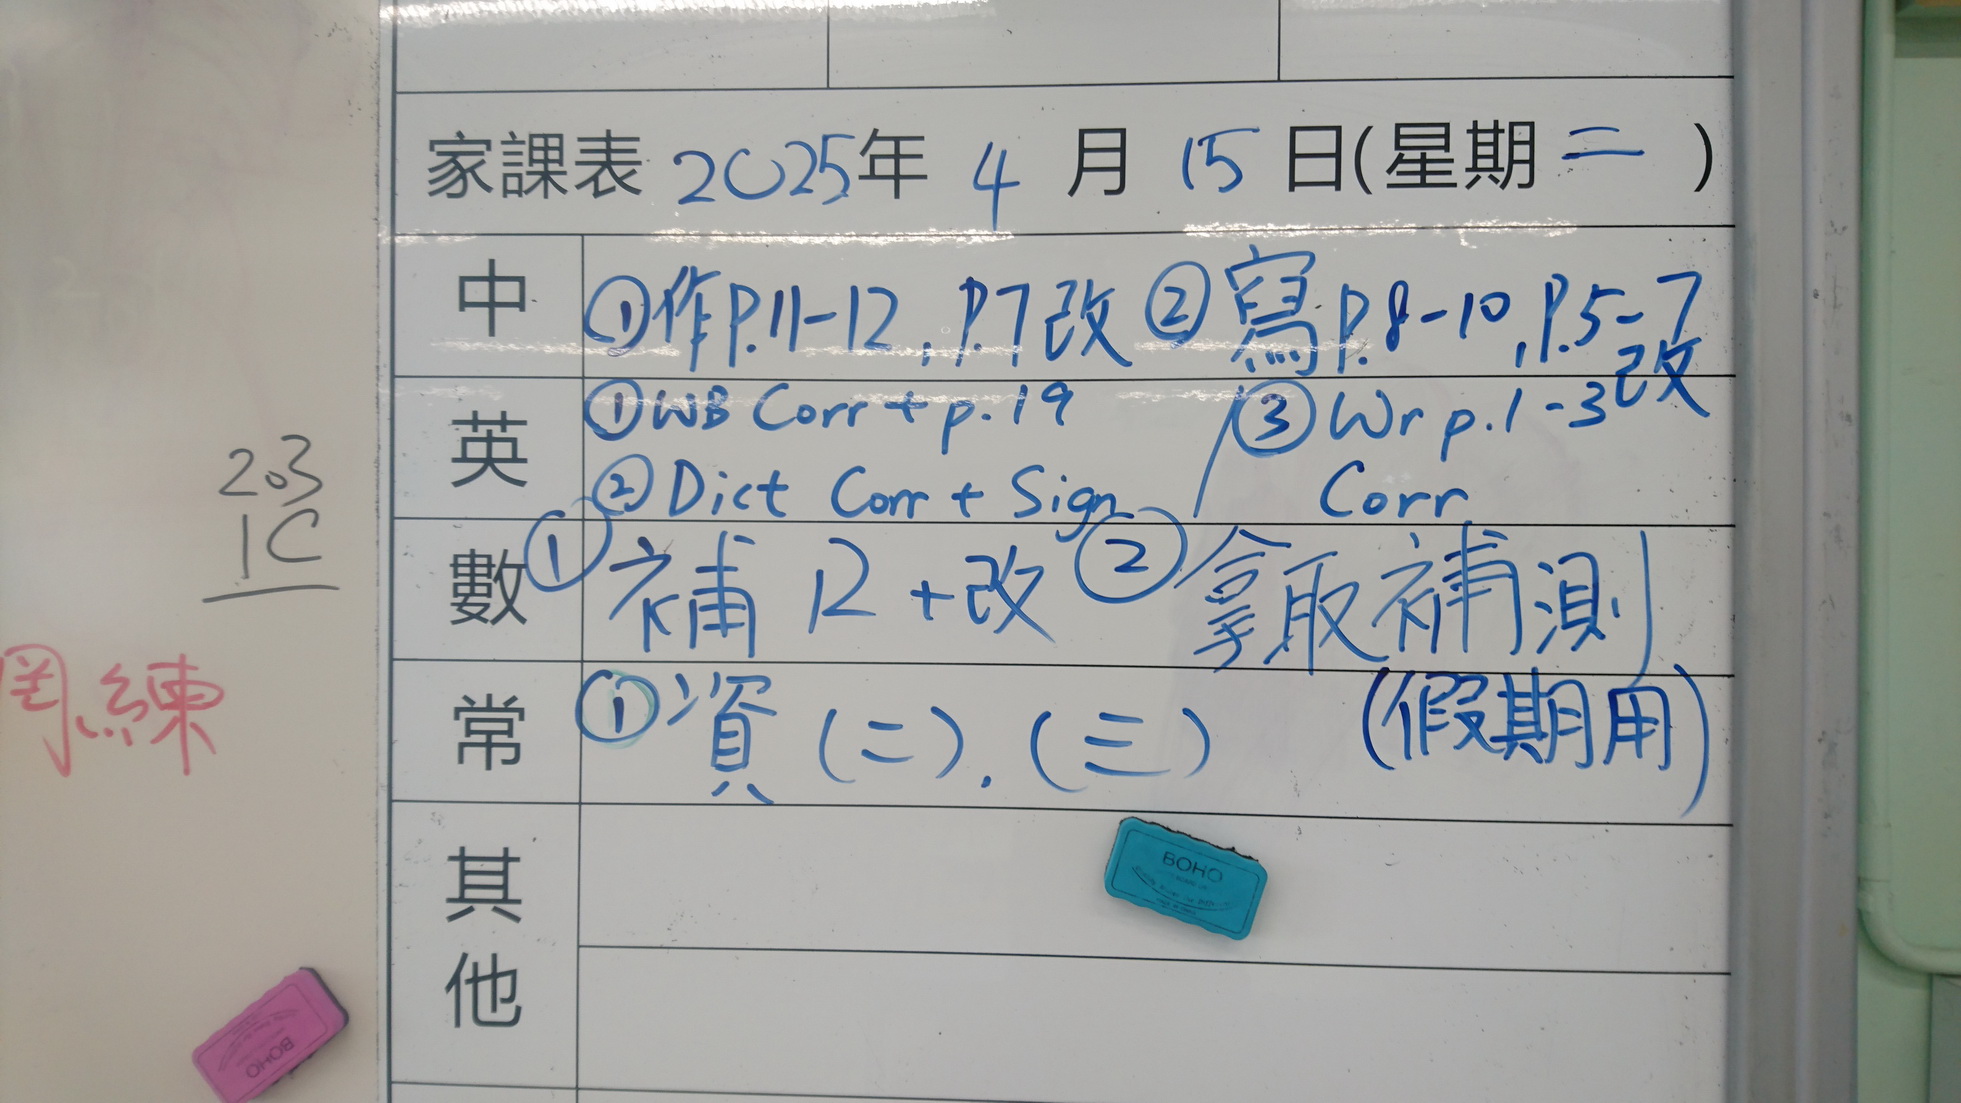 家課表 2025年 4 月 15 日(星期二)
中 ①作P.11-12, P.7改 ②寫P.8-10, P.5-7改
英 ①WB Corr + p.19 / ③Wr p.1-3
②Dict Corr + Sign Corr
數 ①補12+改 ②拿取補測
常 ①資(二).(三) (假期用)
其他
203
1C
練
BOHO
BOHO